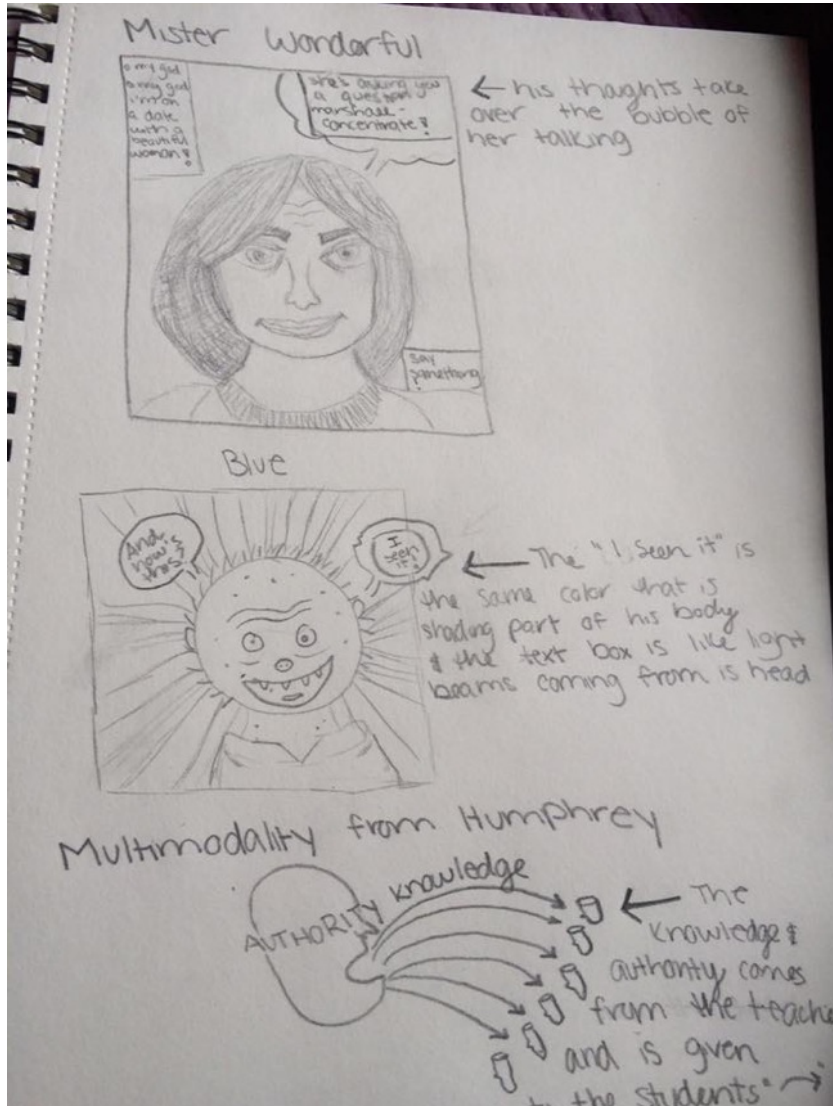 Mister Wonderful
o my god
o my god
i'm on
a date
with a
beautiful
woman!
she's asking you
a question
marshall-
concentrate!
← his thoughts take
over the bubble of
her talking
say
something!
Blue
And
how's
this?
I
seen
it!
← The "I seen it" is
the same color that is
shading part of his body
& the text box is like light
beams coming from is head
Multimodality from Humphrey
AUTHORITY knowledge
← The
knowledge &
authority comes
from the teache
and is given
to the students" →"